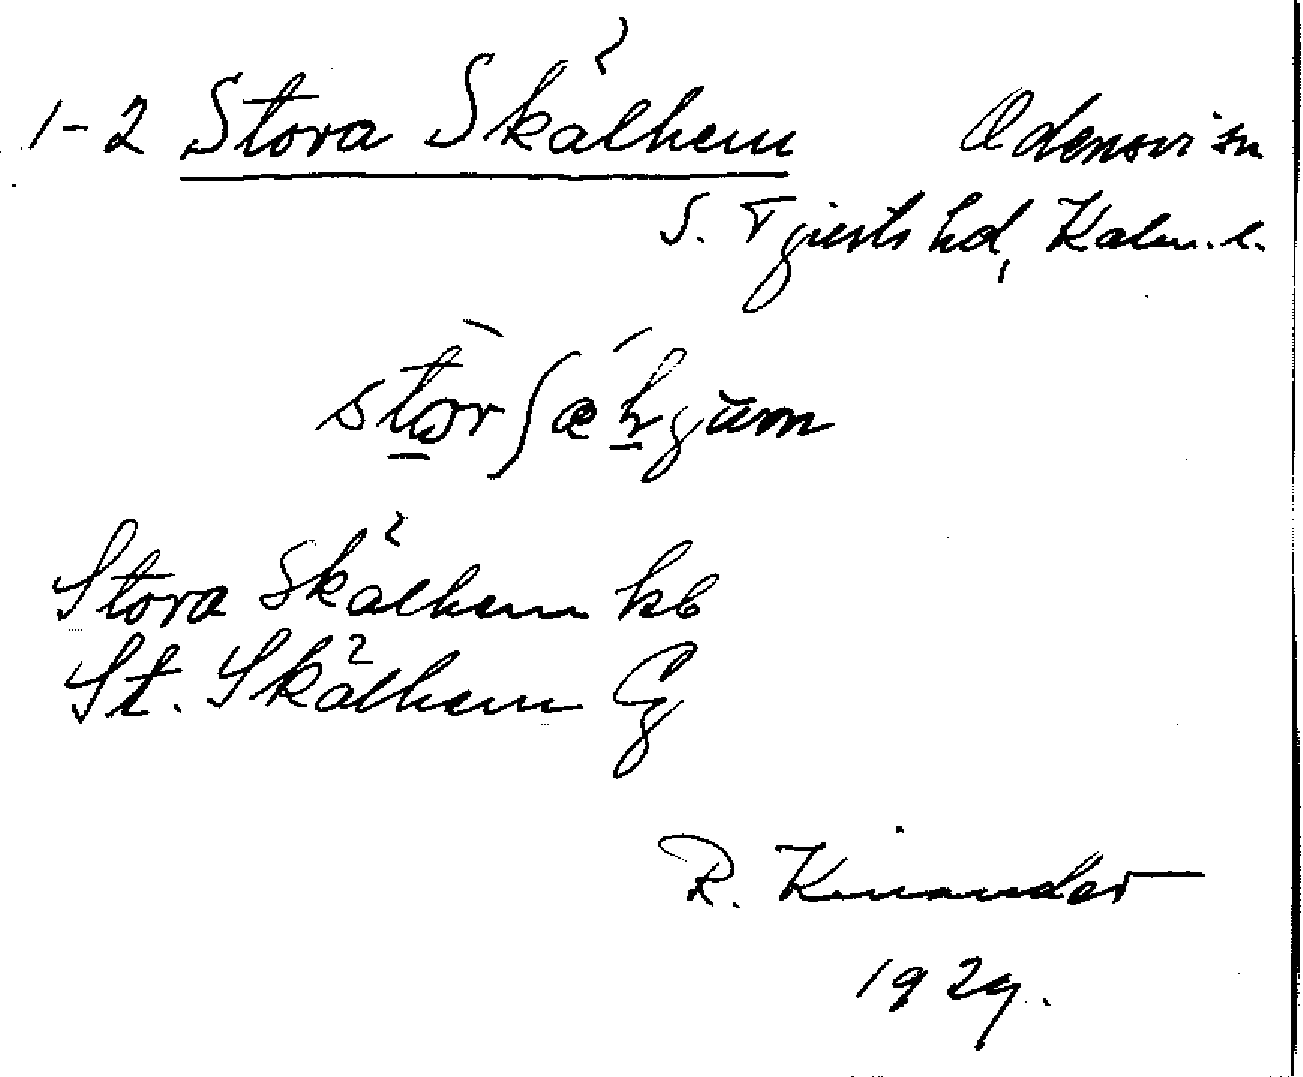 1-2 Stora Skälhem Odensvi sn
S. Tjusts hd, Kalm. l.
Stora Skälhem
St. Skälhem
R. Kinander
1929.